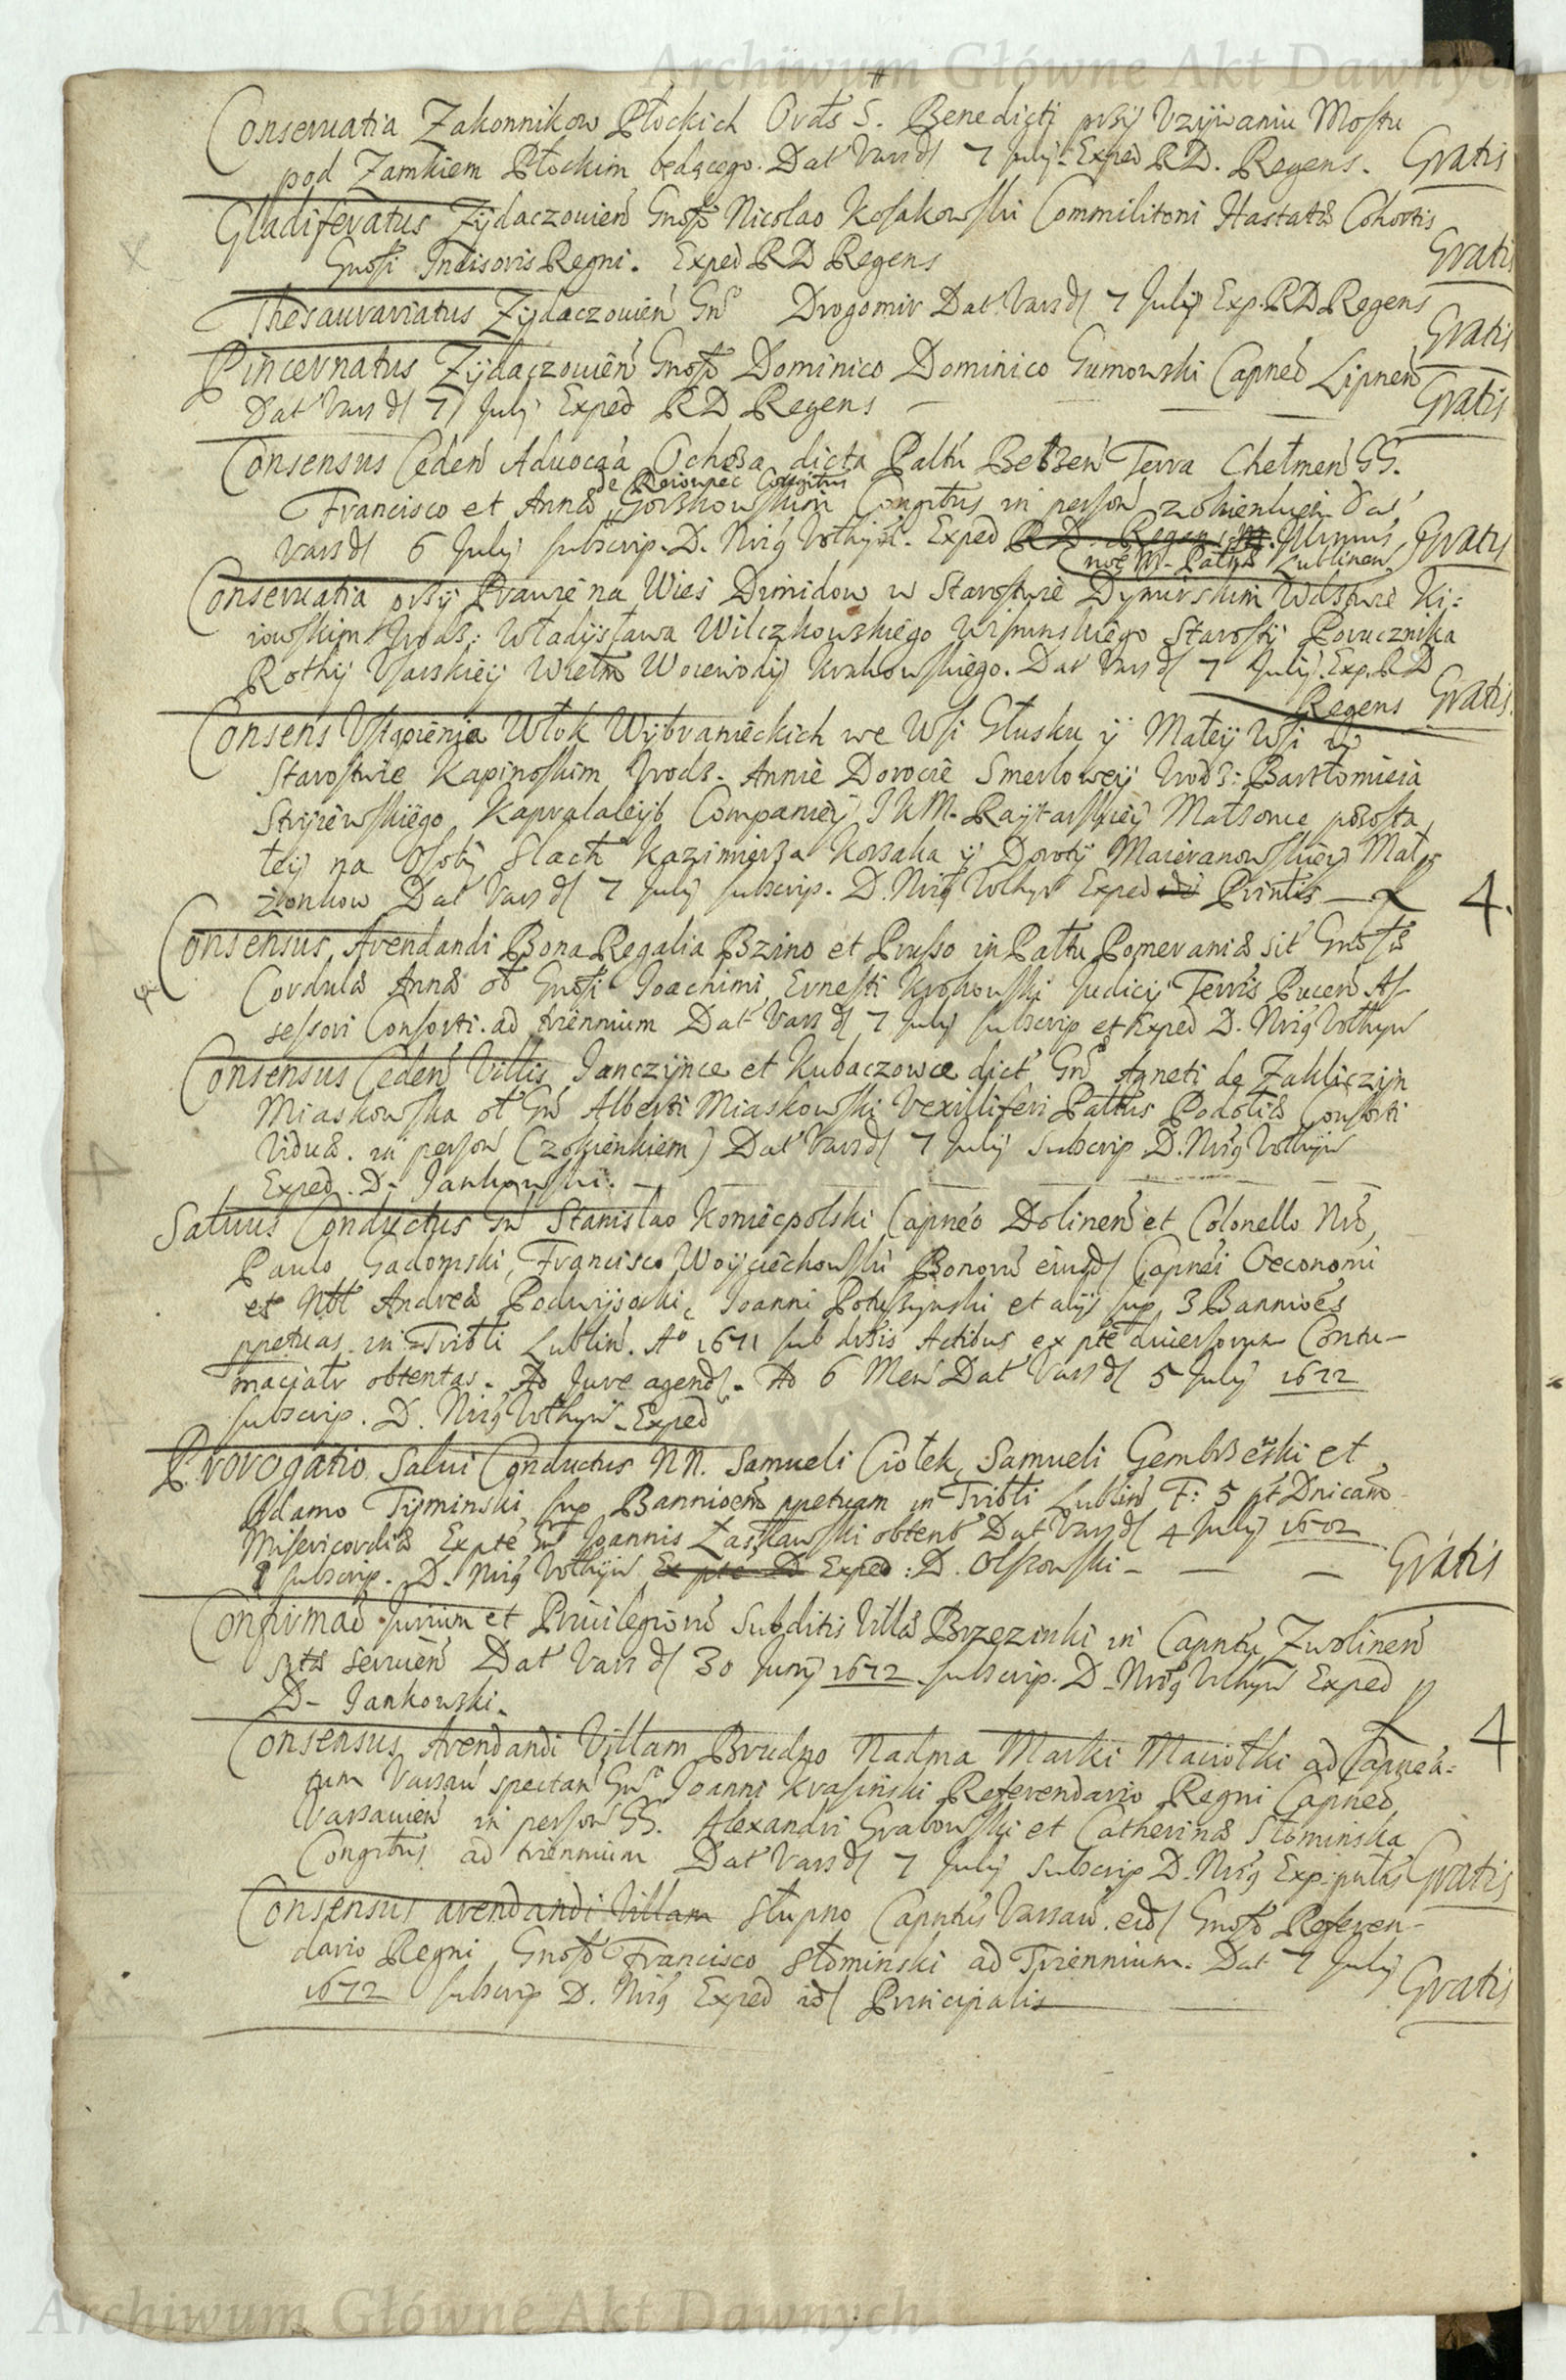 Archiwum Główne Akt Dawnych
Conseruatia Zakonnikow Płockich Ordīs S. Benedicti przy Vzijwaniu Mostu
pod Zamkiem Płockim będącego. Dat Vars d 7 Julij. Exped RD. Regens. Gratis
Gladiferatus Zijdaczouien Gnoso Nicolao Kosakowski Commilitoni Hastatæ Cohortis
Gnosi Incisoris Regni. Exped RD Regens Gratis
Thesaurariatus Zijdaczouien Gno Drogomir Dat Vars d 7 Julij Exp. RD Regens Gratis
Pincernatus Zijdaczouien Gnoso Dominico Dominico Gumowski Capneo Lipnen
Dat Vars d 7 Julij Exped RD Regens Gratis
Consensus Ceden Aduocaa Ochoza dicta Paltu Belzen Terra Chełmen GG.
de Reiowiec Coniugibus
Francisco et Annæ Gorzkowskim Congibus in person zokienkiem Dat
Vars d 6 Julij subscrip. D. Nrig Vołhyn. Exped RD. Regens Gratis
not M. Palus Lublinen
Conseruatia przy Prawie na Wies Dimidow w Starostwie Dymirskim Wdztwie Ki:
iowskim Urodz: Władysława Wilczkowskiego Wisnunskiego Starosty Porucznika
Rothy Vsarskiey Wielm Woiewody Krakowskiego. Dat Vars d 7 Julij. Exp. RD
Regens Gratis
Consens Vstąpienia Włok Wybranieckich we Wsi Głusku y Małey Wsi w
Starostwie Kapinoskim Urodz. Annie Dorocie Smerlowey Urodz: Bartłomieia
Stryiewskiego Kapralaleyb Companiey JKM. Raytarskiey Małzonce pozosta
łey na Osoby Slach Kazimierza Korsaka y Doroty Macieranowskiey Mał
zionkow Dat Vars d 7 Julij subscrip. D. Nrig Vołhyn Exped Printis f 4.
Consensus Arendandi Bona Regalia Bzino et Prusso in Paltu Pomeraniæ sit Gnosæ
Cordulæ Annæ ol Gnosi Joachimi Ernesti Krokowski Judicij Terris Pucen As
sessori Consorti. ad triennium Dat Vars d 7 Julij subscrip et Exped D. Nrig Vołhyn
Consensus Ceden Villis Janczynce et Kubaczowce dict Gn Agneti de Zakliczyn
Miaskowska ol Gn Alberti Miaskowski Vexilliferi Paltus Podoliæ Consorti
Viduæ. in person (zokienkiem) Dat Vars d 7 Julij Subscrip D. Nrig Vołhyn
Exped. D. Jankowski.
Saluus Conductus Gn Stanislao Koniecpolski Capneo Dolinen et Colonello Nro,
Paulo Gadomski, Francisco Woyciechowski Bonoru eiusd Capnei Oeconomi
et Nbl Andreæ Podwysocki, Joanni Potuszynski et alijs sup 3 Bannioes
ppetuas in Tribli Lublin. Ao 1671 sub drsis Actibus ex pte diuersorum Contu-
maciatr obtentas. Ad Jure agend. Ad 6 Men Dat Vars d 5 Julij 1672
subscrip. D. Nrig Vołhyn. Exped
Prorogatio Salui Conductus NN. Samueli Ciołek, Samueli Gembrzeski et
Adamo Tyminski sup Bannioem ppetuam in Tribli Lublin F: 5 pt Dnicam
Misericordiæ Ex pte Gn Joannis Zasławski obtent Dat Vars d 4 Julij 1672
subscrip. D. Nrig Vołhyn Ex pte D Exped: D. Olszowski Gratis
Confirmao Jurium et Priuilegioru Subditis Villæ Brzezinki in Capntu Zwolinen
seruien Dat Vars d 30 Junij 1672 subscrip. D. Nrig Vołhyn Exped
D. Jankowski. f 4
Consensus Arendandi Villam Brudno Nadma Marki Maciołki ad Capnea:
tum Varsau spectan Gno Joanni Krasiński Referendario Regni Capneo
Varsauien in person GG. Alexandri Grabowski et Catherinæ Słominska
Congibus ad triennium Dat Vars d 7 Julij Subscrip D. Nrig Exp. Gratis
Consensus arendandi Villam Słupno Capntus Varsau. eid Gnoso Referen-
dario Regni Gnoso Francisco Słominski ad Triennium. Dat 7 Julij
1672 subscrip D. Nrig Exped id Principalis Gratis
Archiwum Główne Akt Dawnych